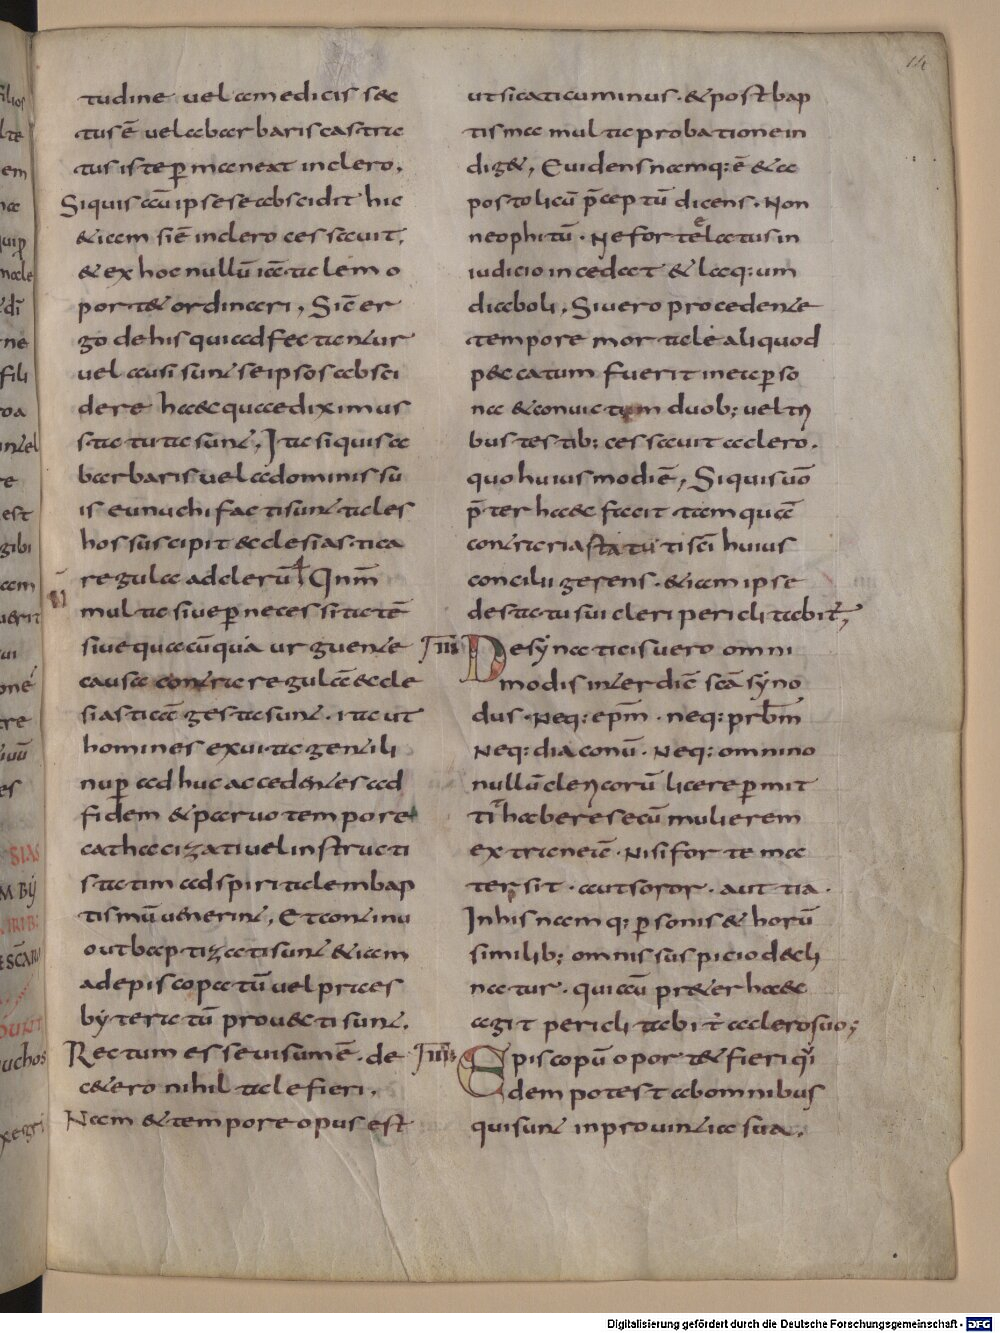 14
tudine uel a medicis sec
tus ē uel a barbaris castra
tus iste ꝑ maneat in clero.
Siquis aū ipse se abscidit hic
& iam si ē in clero cessauit.
& ex hoc nullū iā talem o
port& ordinari. Sic̄ er
go de his qui adfectantur
uel ausi sunt se ipsos absci
dere haec quae diximus
statuta sunt. Ita si quis a
barbaris uel a dominis su
is eunuchi facti sunt tales
hos suscipit ecclesiastica
regula ad clerū Qnm̄
II
multa siue ꝑ necessitatē
siue quacūquia urguente
causa contra regulā eccle
siasticā gesta sunt. ita ut
homines ex uita gentili
nuꝑ adhuc accedentes ad
fidem & paruo tempore
cathacizati uel instructi
statim ad spiritalem bap
tismū uenerint. Et continu
o ut baptizati sunt & iam
ad episcopatū uel praes
byteratū prouecti sunt.
Rectum esse uisum ē. de
c&ero nihil tale fieri.
Nam & tempore opus est
ut sicaticuminus. & post bap
tisma multa probatione in
dig&. Euidens namq: ē & a
postolicū p̄ceptū dicens. Non
neophitū. Ne forte elatus in
iudicio incedat & laq:um
diaboli. Si uero procedente
tempore mortale aliquod
peccatum fuerit in eta ꝑso
na & conuictum duob; uel tri
bus testib; cessauit a clero.
quo huiusmodi ē. Siquis uō
p̄ter haec facit tamquā
contraria statuti sc̄i huius
concilii gerens. & iam ipse
de statu sui cleri periclitabit̄;
III Desynaticis uero omni
modis interdic̄ sc̄a syno
dus. Neq: ep̄m. neq: prb̄m
Neq: diaconū. Neq: omnino
nullū clericorū licere ꝑmit
tit habere secū mulierem
extraneā. Nisi forte ma
ter sit. aut soror. aut tia.
In his namq; ꝑsonis & horū
similib; omnis suspicio decli
natur. qui aū praeter haec
agit periclitabit̄ a clero suo;
IIII Episcopū oport& fieri qui
dem potest ab omnibus
qui sunt in prouintia sua.
Digitalisierung gefördert durch die Deutsche Forschungsgemeinschaft - DFG